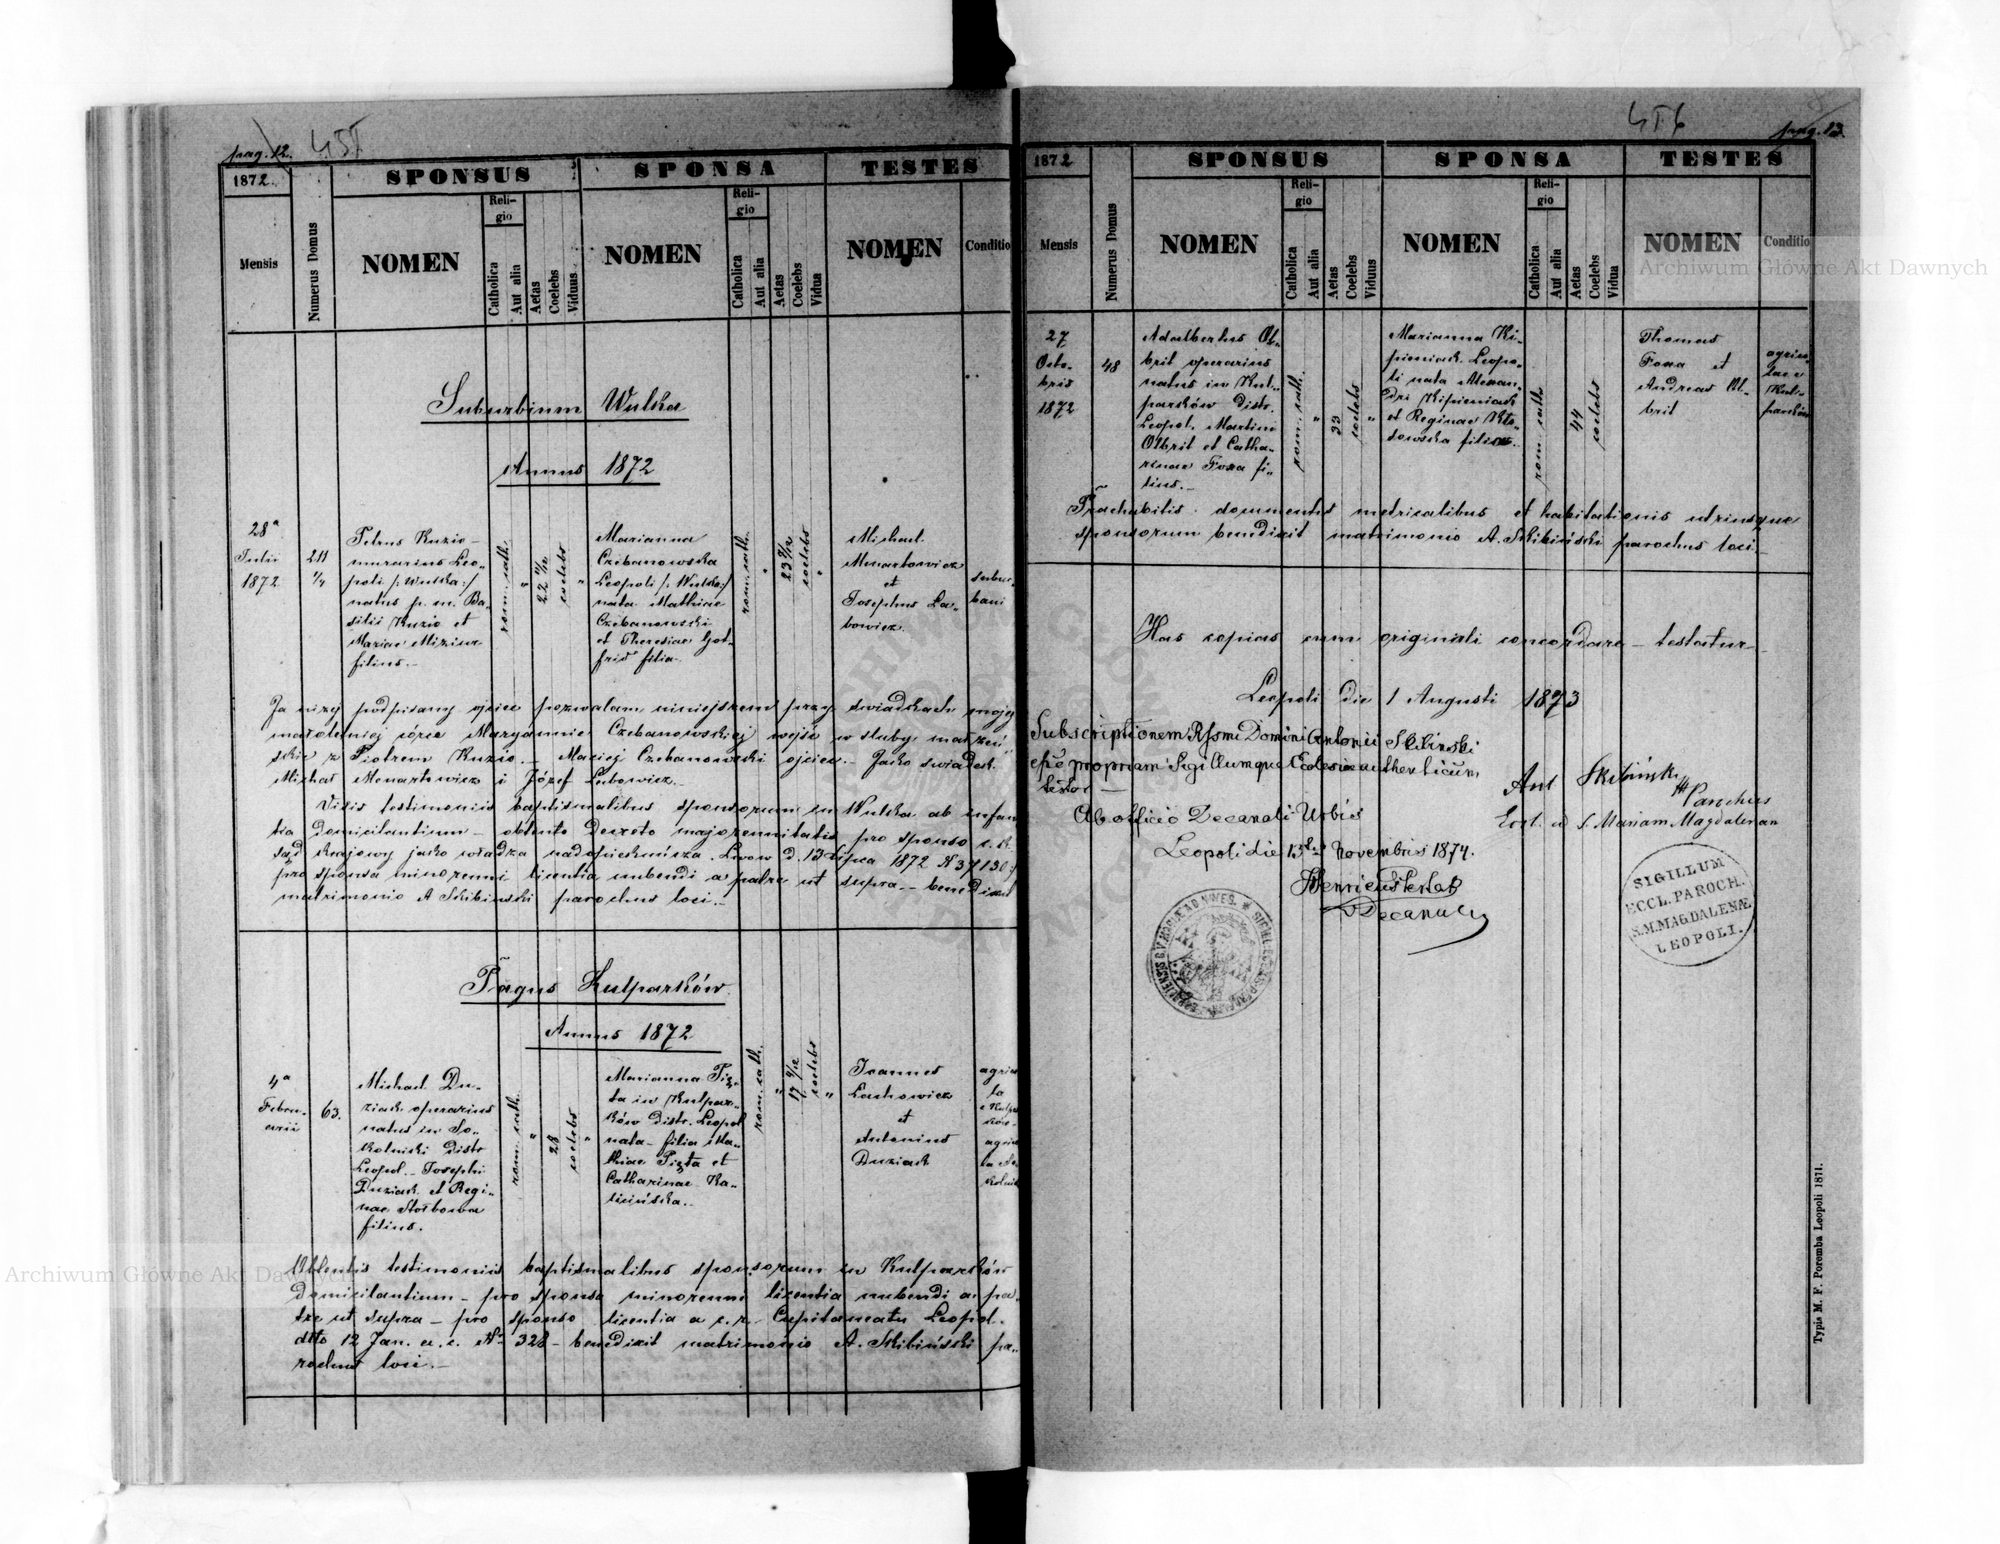 pag. 12.
455
1872.
SPONSUS
SPONSA
TESTES
Mensis
Numerus Domus
NOMEN
Reli-
gio
Catholica
Aut alia
Aetas
Coelebs
Viduus
NOMEN
Reli-
gio
Catholica
Aut alia
Aetas
Coelebs
Vidua
NOMEN
Conditio
Suburbium Wulka
Annus 1872
28ª
Julii
1872
211
1/4
Petrus Kuzio -
murarius Leo-
poli /: Wulka :/
natus p. m. Ba-
silii Kuzio et
Mariae
filius.-
rom. cath.
"
22
coelebs
"
Marianna
Czebanowska
Leopoli /: Wulka :/
nata Mathiae
Czebanowski
et Theresiae Got-
frid filia
rom. cath.
"
23
coelebs
"
Michael
Menartowicz
et
Josephus La-
bowicz.
subur-
bani
Ja niżej podpisany ojciec pozwalam niniejszem przy świadkach mojej
małoletniej córce Maryannie Czebanowskiej wejść w śluby małżeń-
skie z Piotrem Kuzio. - Maciej Czebanowski ojciec. - Jako świadek
Michał Menartowicz i Józef Labowicz. -
Visis testimoniis baptismalibus sponsorum in Wulka ab infan
tia domicilantium - obtento Decreto majorennitatis pro sponso c. k.
sąd krajowy jako władza nadopiekuńcza. Lwow d. 13 Lipca 1872 N 37130 :/
pro sponsa minorenni licentia nubendi a patre ut supra. - benedixit
matrimonio A Skibiński parochus loci. -
Pagus Kulparków
Annus 1872
4ª
Febru-
arii
63.
Michael Du-
ziak operarius
natus in So-
kolniki Distr
Leopol. - Josephi
Duziak et Regi-
nae
filius.
rom. cath.
"
28
coelebs
"
Marianna Pię-
ta in Kulpar-
ków Distr. Leopol
nata - filia Ma-
thiae Pięta et
Catharinae Ka-
licińska. -
rom. cath.
"
17
coelebs
"
Joannes
Lachowicz
et
Antonius
Duziak
agrico
la
e Kulpar
ków -
agrico
la
Obtentis testimoniis baptismalibus sponsorum in Kulparków
Domicilantium - pro sponsa minorenni licentia nubendi a pa-
tre ut supra - pro sponso licentia a c. r. Capitaneatu Leopol.
dtto 12 Jan. a. c. N° 328 - benedixit matrimonio A. Skibiński pa-
rochus loci. -
456
pag. 13.
1872
SPONSUS
SPONSA
TESTES
Mensis
Numerus Domus
NOMEN
Reli-
gio
Catholica
Aut alia
Aetas
Coelebs
Viduus
NOMEN
Reli-
gio
Catholica
Aut alia
Aetas
Coelebs
Vidua
NOMEN
Conditio
27
Octo-
bris
1872
48
Adalbertus Ol-
brit operarius
natus in Kul-
parków Distr.
Leopol. Martini
Olbrit et Catha-
rinae Foxa fi-
lius. -
rom. cath.
"
33
coelebs
"
Marianna Ki-
pieniak Leopo-
li nata Alexan-
dri Kipieniak
et Reginae Kło-
sowska filia.
rom. cath.
44
coelebs
Thomas
Foxa et
Andreas Ol-
brit
agrico-
lae e
Kul-
parków
Prachabitis documentis metricalibus et habitationis utriusque
sponsorum benedixit matrimonio A. Skibiński parochus loci. -
Has copias cum originali concordare - testatur -
Leopoli die 1 Augusti 1873
Subscriptionem Rssmi Domini Antonii Skibinski
eße propriam Sigillumque Eclesiae authenticum
testor —
Ant Skibiński
Parochus
Eccl. ad S. Mariam Magdalenam
Ab officio Decanali Urbis
Leopoli die 13 Novembris 1874.
Decanus
SIGILLUM
ECCL. PAROCH.
S.M.MAGDALENÆ
LEOPOLI.
Typis M. F. Poremba Leopoli 1871.
Archiwum Główne Akt Dawnych
Archiwum Główne Akt Dawnych